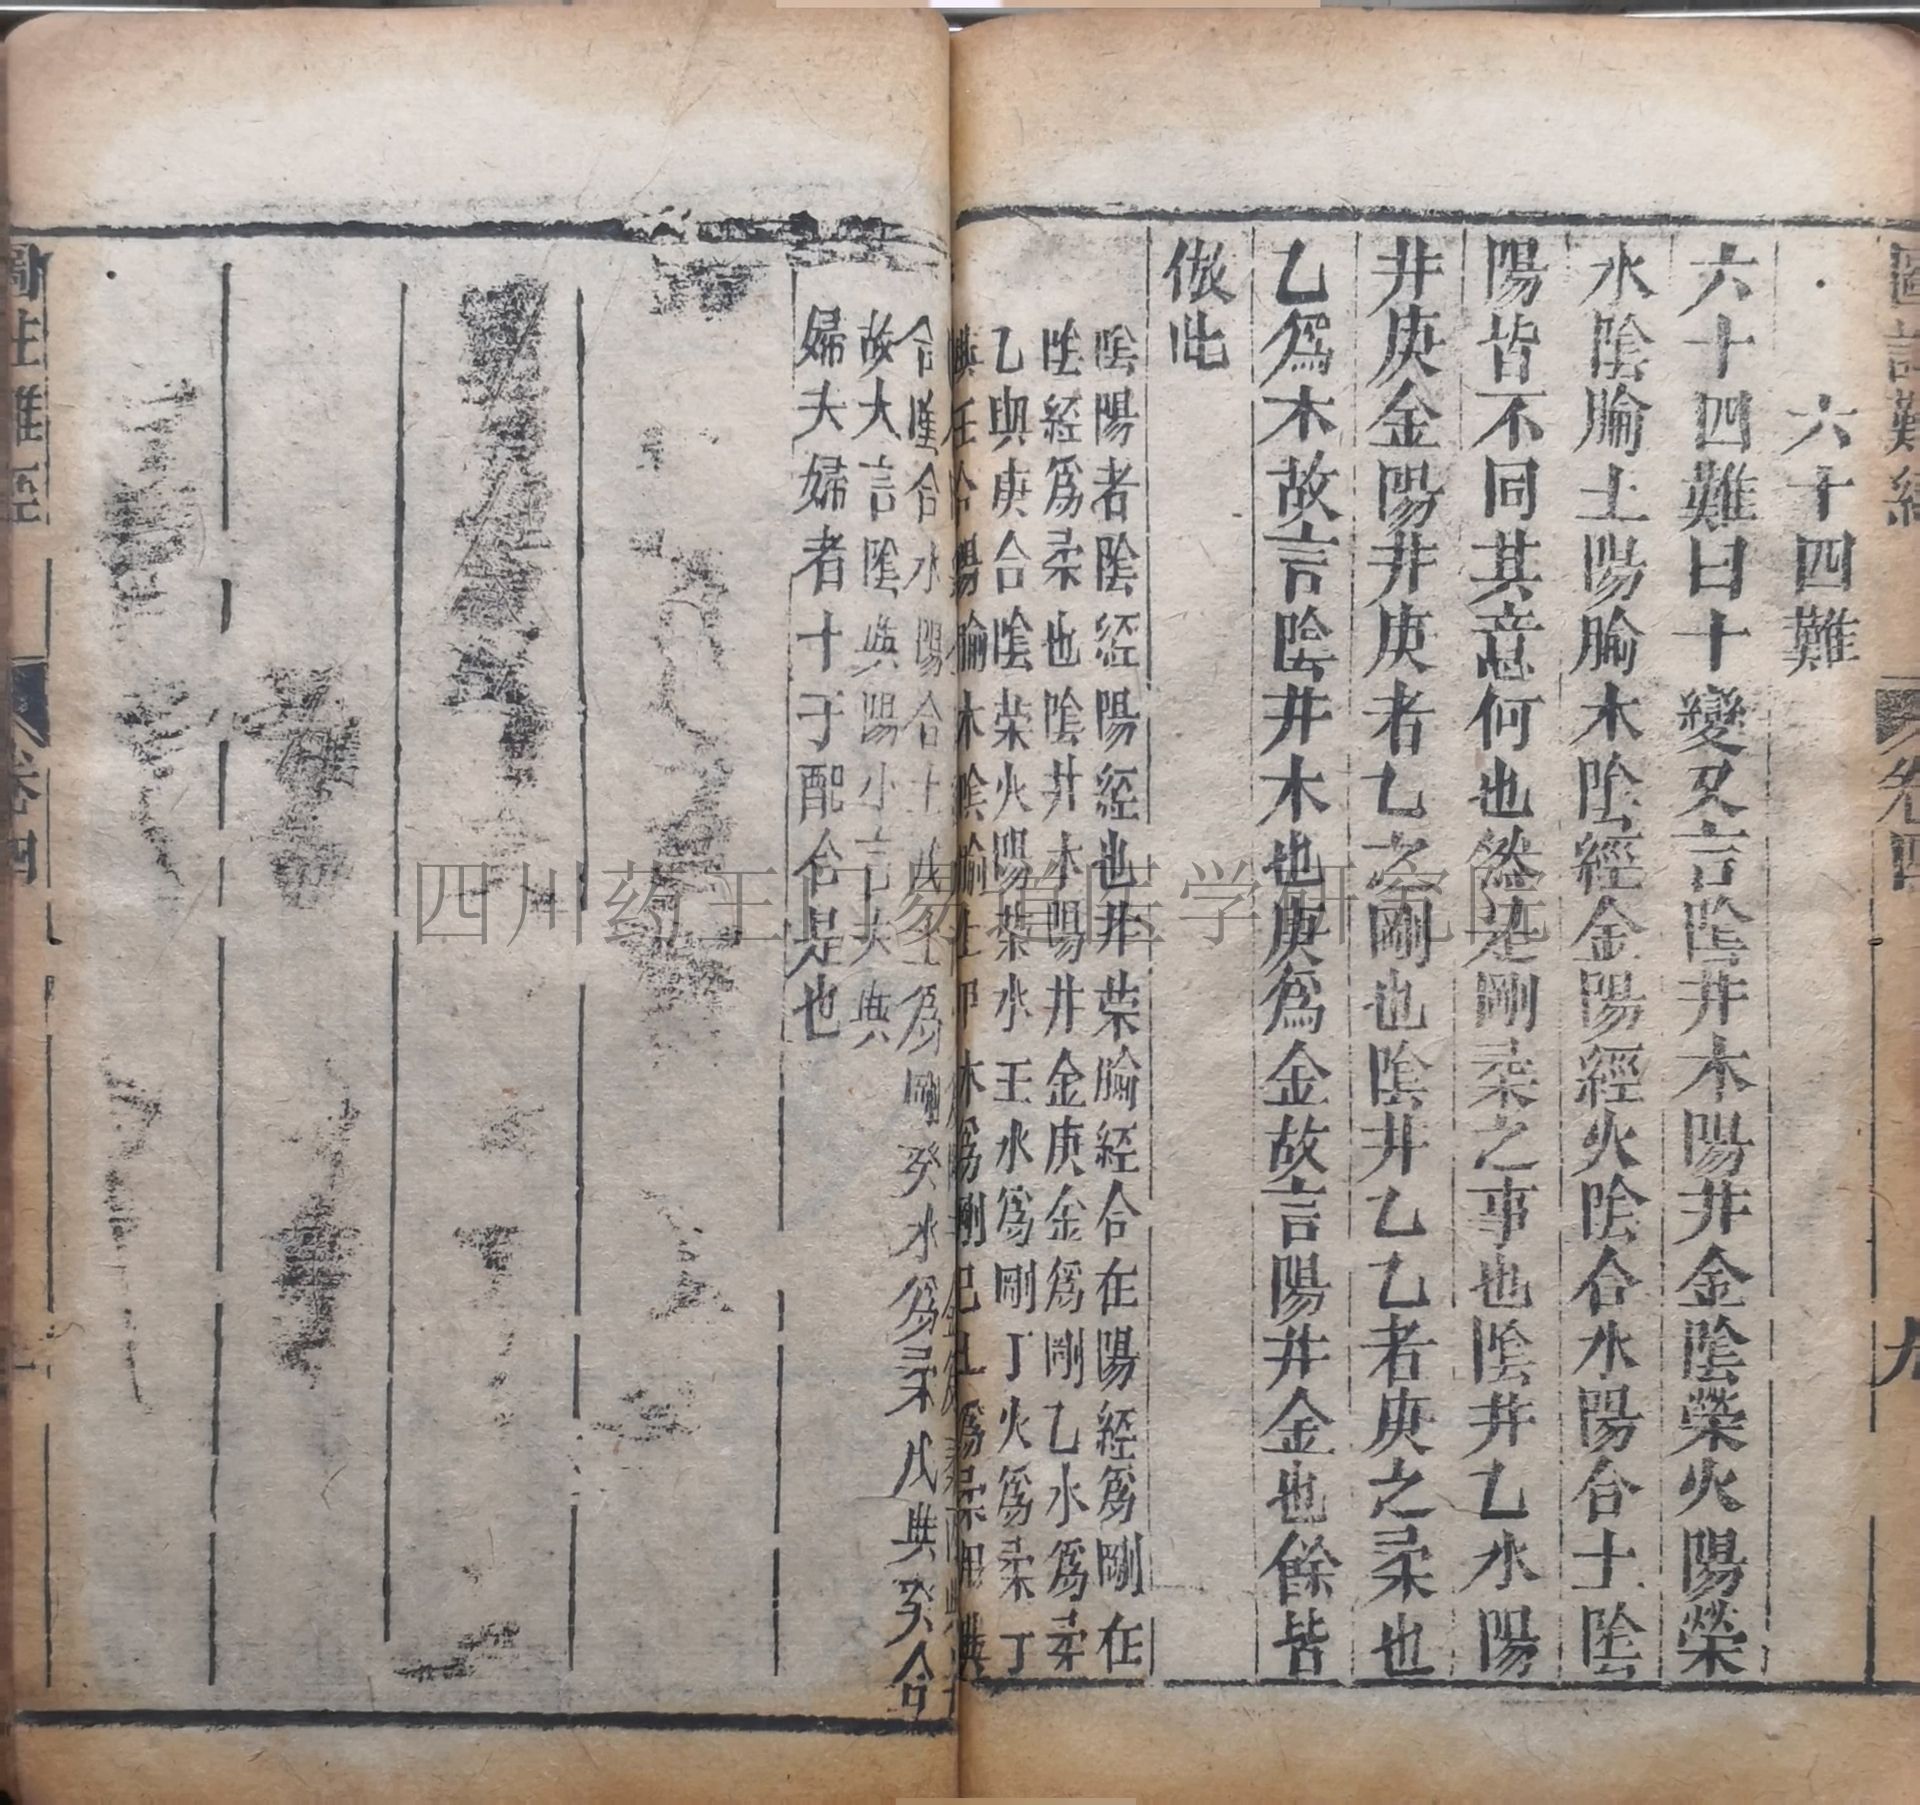 圖註難經 卷四 九
六十四難
六十四難曰十變又言陰井木陽井金陰榮火陽榮
水陰腧土陽腧木陰經金陽經火陰合水陽合土陰
陽皆不同其意何也然是剛柔之事也陰井乙水陽
井庚金陽井庚者乙之剛也陰井乙乙者庚之柔也
乙爲木故言陰井木也庚爲金故言陽井金也餘皆
倣此
陰陽者陰經陽經也井荣腧經合在陽經爲剛在
陰經爲柔也陰井木陽井金庚金爲剛乙水爲柔
乙與庚合陰荣火陽荣水王水爲剛丁火爲柔丁
與壬合陽腧木陰腧土甲木爲剛己土爲柔甲與
合陰合水陽合土戊土爲剛癸水爲柔戊與癸合
故大言陰與陽小言夫與
婦夫婦者十于配合是也
圖註難經 卷四
四川药王门易道医学研究院